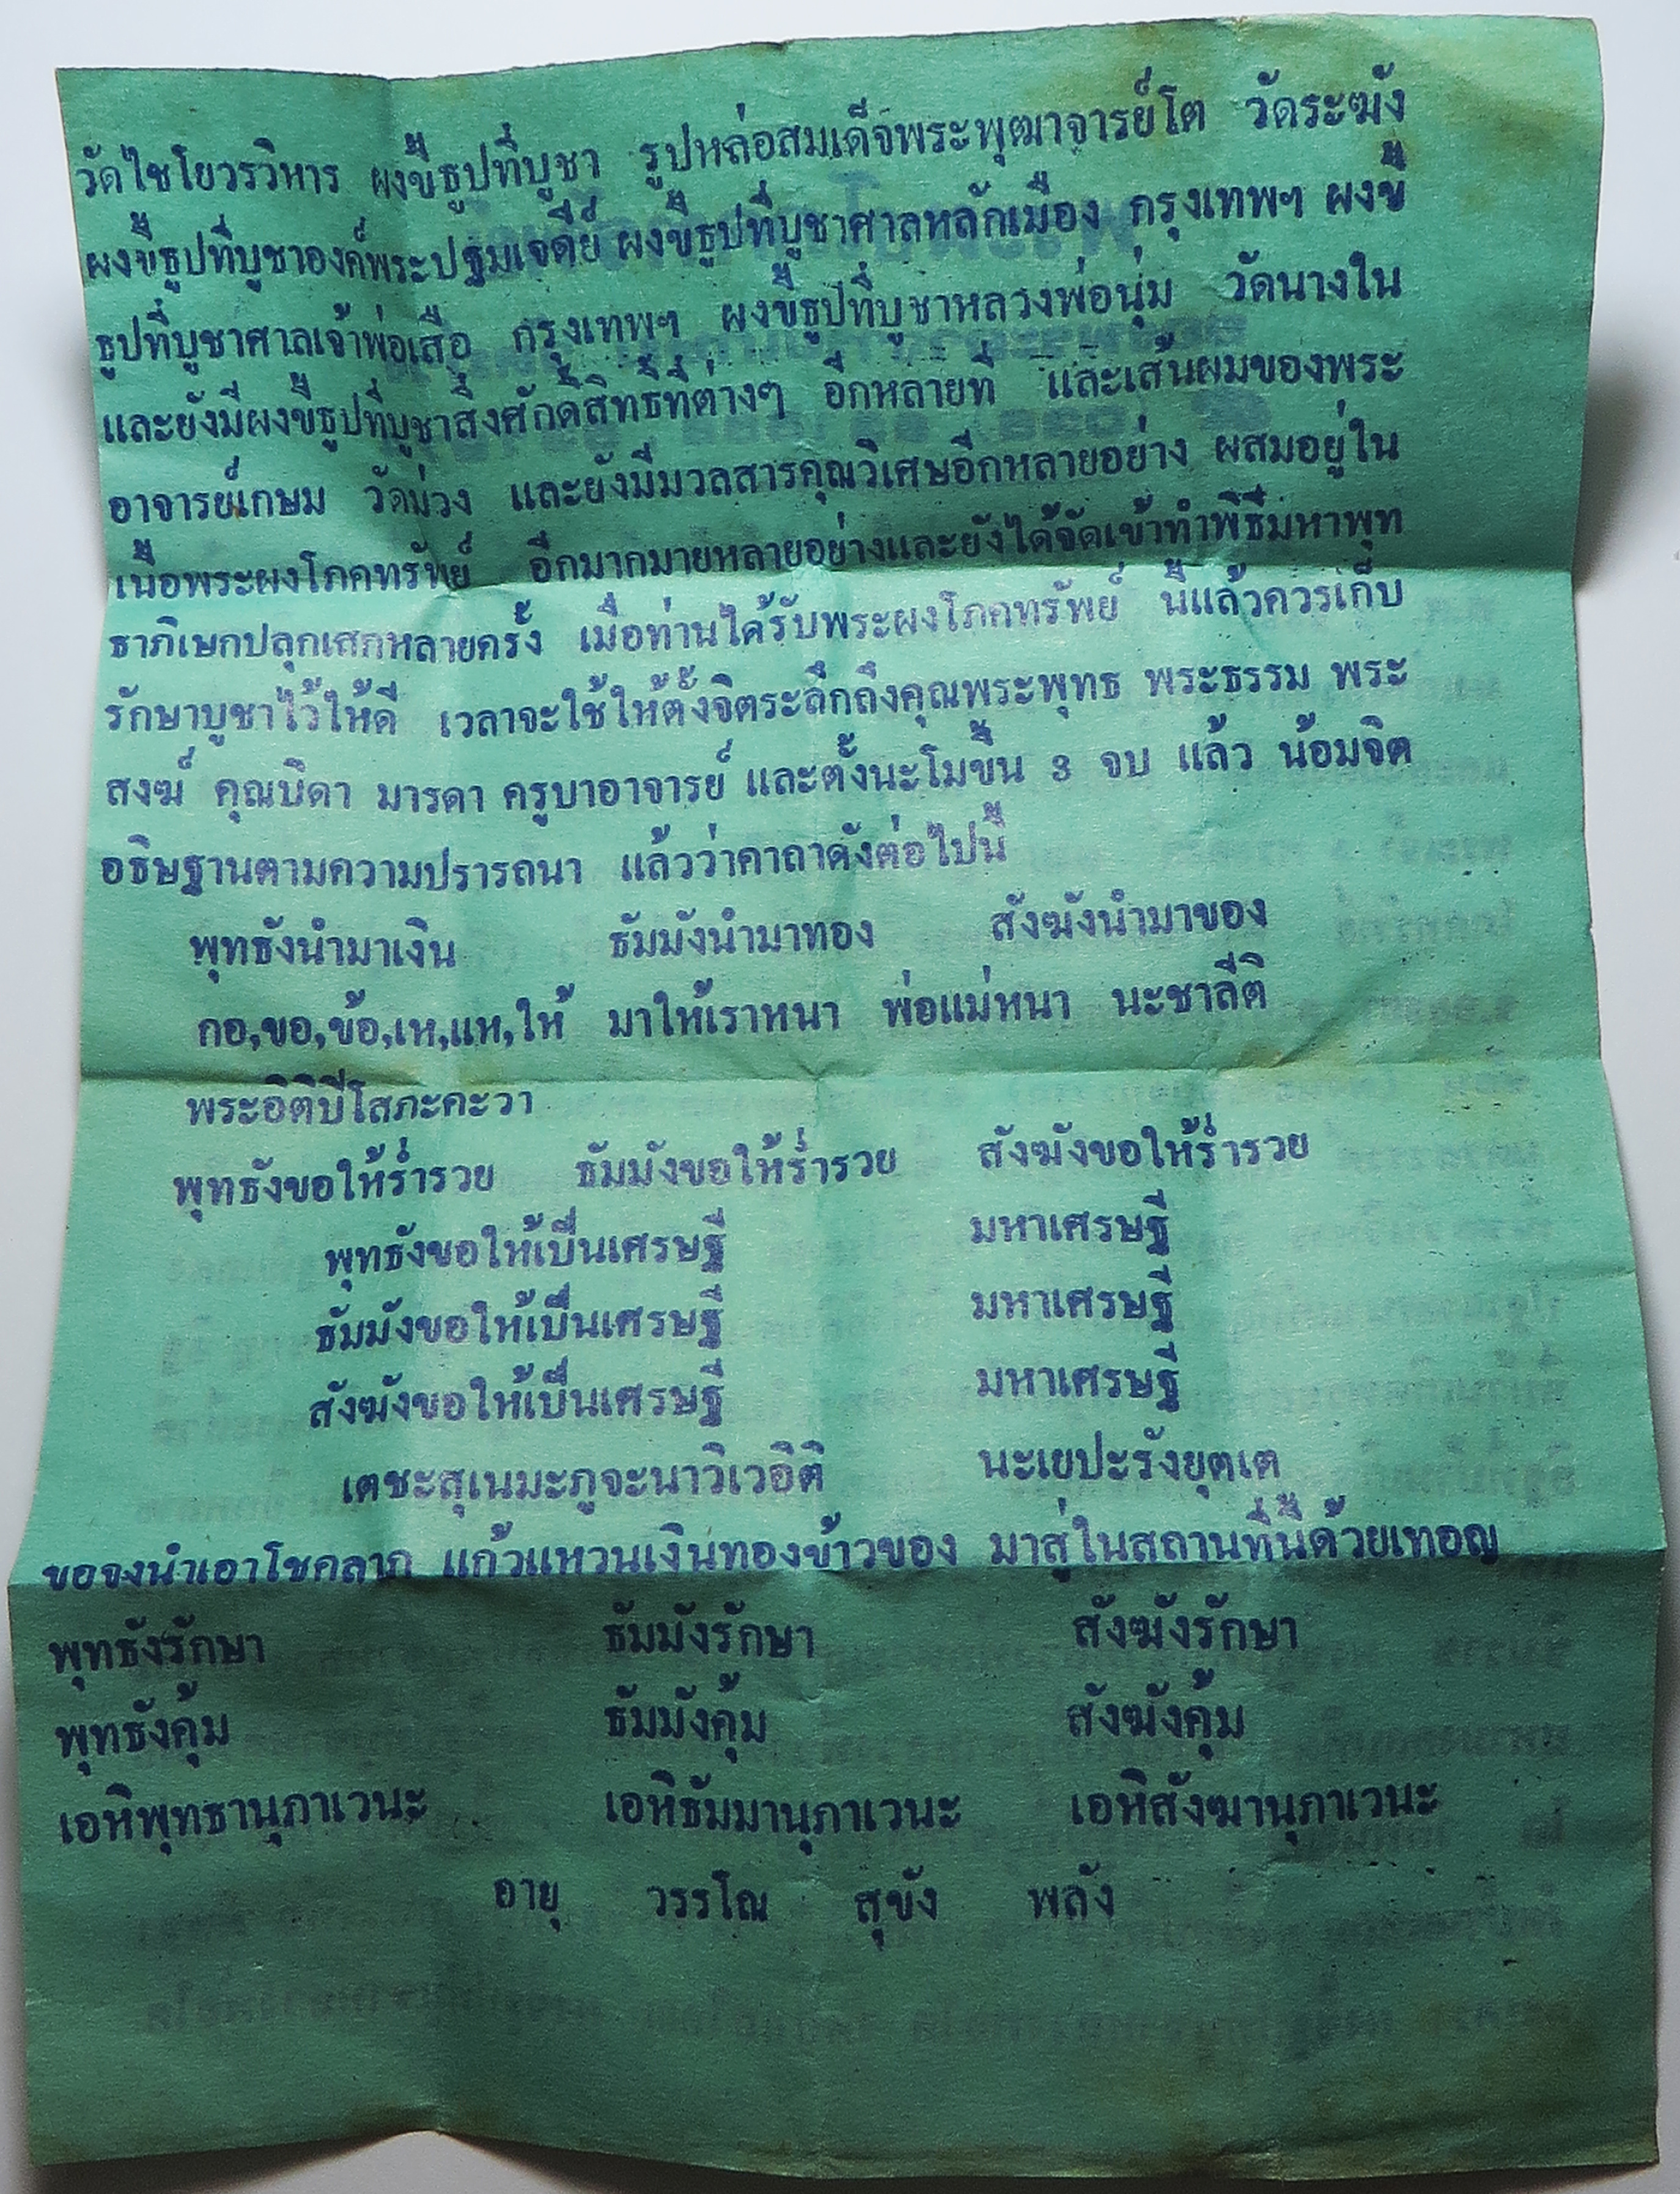 วัดไชโยวรวิหาร ผงขี้ธูปที่บูชา รูปหล่อสมเด็จพระพุฒาจารย์โต วัดระฆัง
ผงขี้ธูปที่บูชาองค์พระปฐมเจดีย์ ผงขี้ธูปที่บูชาศาลหลักเมือง กรุงเทพฯ ผงขี้
ธูปที่บูชาศาลเจ้าพ่อเสือ กรุงเทพฯ ผงขี้ธูปที่บูชาหลวงพ่อนุ่ม วัดนางใน
และยังมีผงขี้ธูปที่บูชาสิ่งศักดิ์สิทธิ์ที่ต่างๆ อีกหลายที่ และเส้นผมของพระ
อาจารย์เกษม วัดม่วง และยังมีมวลสารคุณวิเศษอีกหลายอย่าง ผสมอยู่ใน
เนื้อพระผงโภคทรัพย์ อีกมากมายหลายอย่างและยังได้จัดเข้าทำพิธีมหาพุท
ธาภิเษกปลุกเสกหลายครั้ง เมื่อท่านได้รับพระผงโภคทรัพย์ นี้แล้วควรเก็บ
รักษาบูชาไว้ให้ดี เวลาจะใช้ให้ตั้งจิตระลึกถึงคุณพระพุทธ พระธรรม พระ
สงฆ์ คุณบิดา มารดา ครูบาอาจารย์ และตั้งนะโมขึ้น 3 จบ แล้ว น้อมจิต
อธิษฐานตามความปรารถนา แล้วว่าคาถาดังต่อไปนี้
พุทธังนำมาเงิน ธัมมังนำมาทอง สังฆังนำมาของ
กอ,ขอ,ข้อ,เห,แห,ให้ มาให้เราหนา พ่อแม่หนา นะชาลีติ
พระอิติปิโสภะคะวา
พุทธังขอให้ร่ำรวย ธัมมังขอให้ร่ำรวย สังฆังขอให้ร่ำรวย
พุทธังขอให้เป็นเศรษฐี มหาเศรษฐี
ธัมมังขอให้เป็นเศรษฐี มหาเศรษฐี
สังฆังขอให้เป็นเศรษฐี มหาเศรษฐี
เตชะสุเนมะภูจะนาวิเวอิติ นะเยปะรังยุตเต
ขอจงนำเอาโชคลาภ แก้วแหวนเงินทองข้าวของ มาสู่ในสถานที่นี้ด้วยเทอญ
พุทธังรักษา ธัมมังรักษา สังฆังรักษา
พุทธังคุ้ม ธัมมังคุ้ม สังฆังคุ้ม
เอหิพุทธานุภาเวนะ เอหิธัมมานุภาเวนะ เอหิสังฆานุภาเวนะ
อายุ วรรโณ สุขัง พลัง